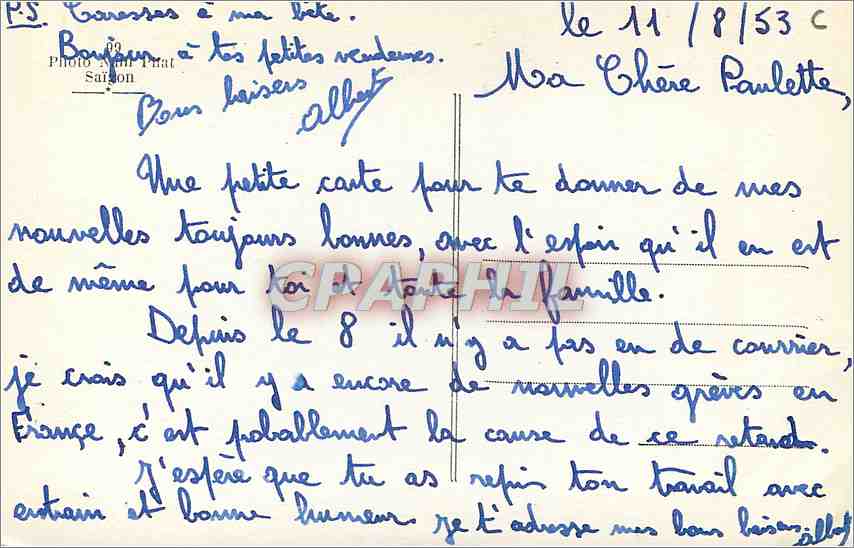 P.S. Caresses à ma bête.
Bonjour à tes petites vendeuses.
99
Photo Nam Phat
Saïgon
Bons baisers
Albert
le 11/8/53 C
Ma Chère Paulette,
Une petite carte pour te donner de mes
nouvelles toujours bonnes, avec l'espoir qu'il en est
de même pour toi et toute la famille.
CPAPHIL
Depuis le 8 il n'y a pas eu de courrier,
je crois qu'il y a encore de nouvelles grèves en
France, c'est probablement la cause de ce retard.
J'espère que tu as repris ton travail avec
entrain et bonne humeur. Je t'adresse mes bons baisers. Albert